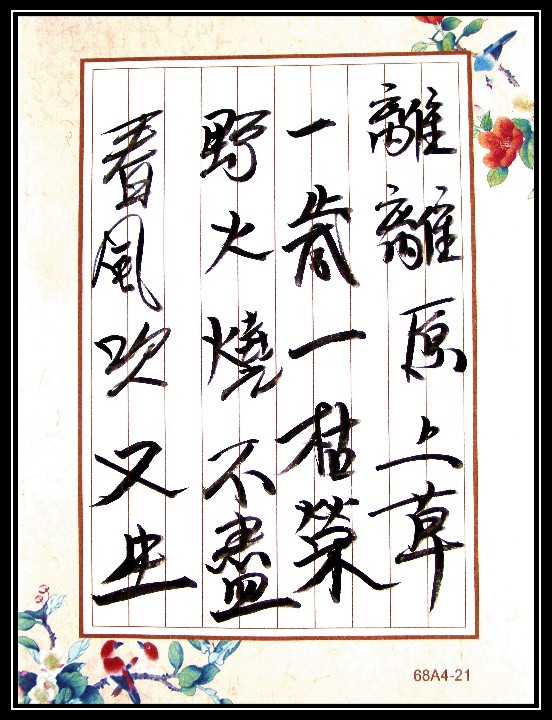 離離原上草
一歲一枯榮
野火燒不盡
春風吹又生
68A4-21